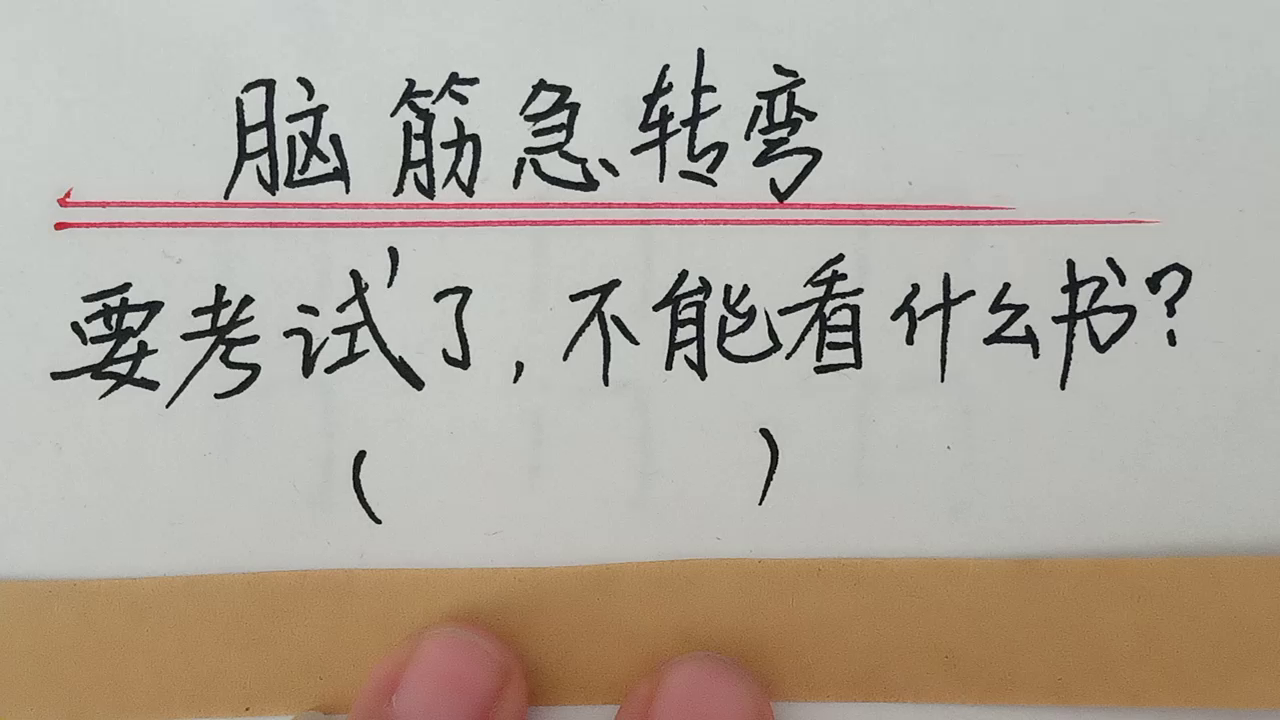 脑筋急转弯
要考试了,不能看什么书?
( )